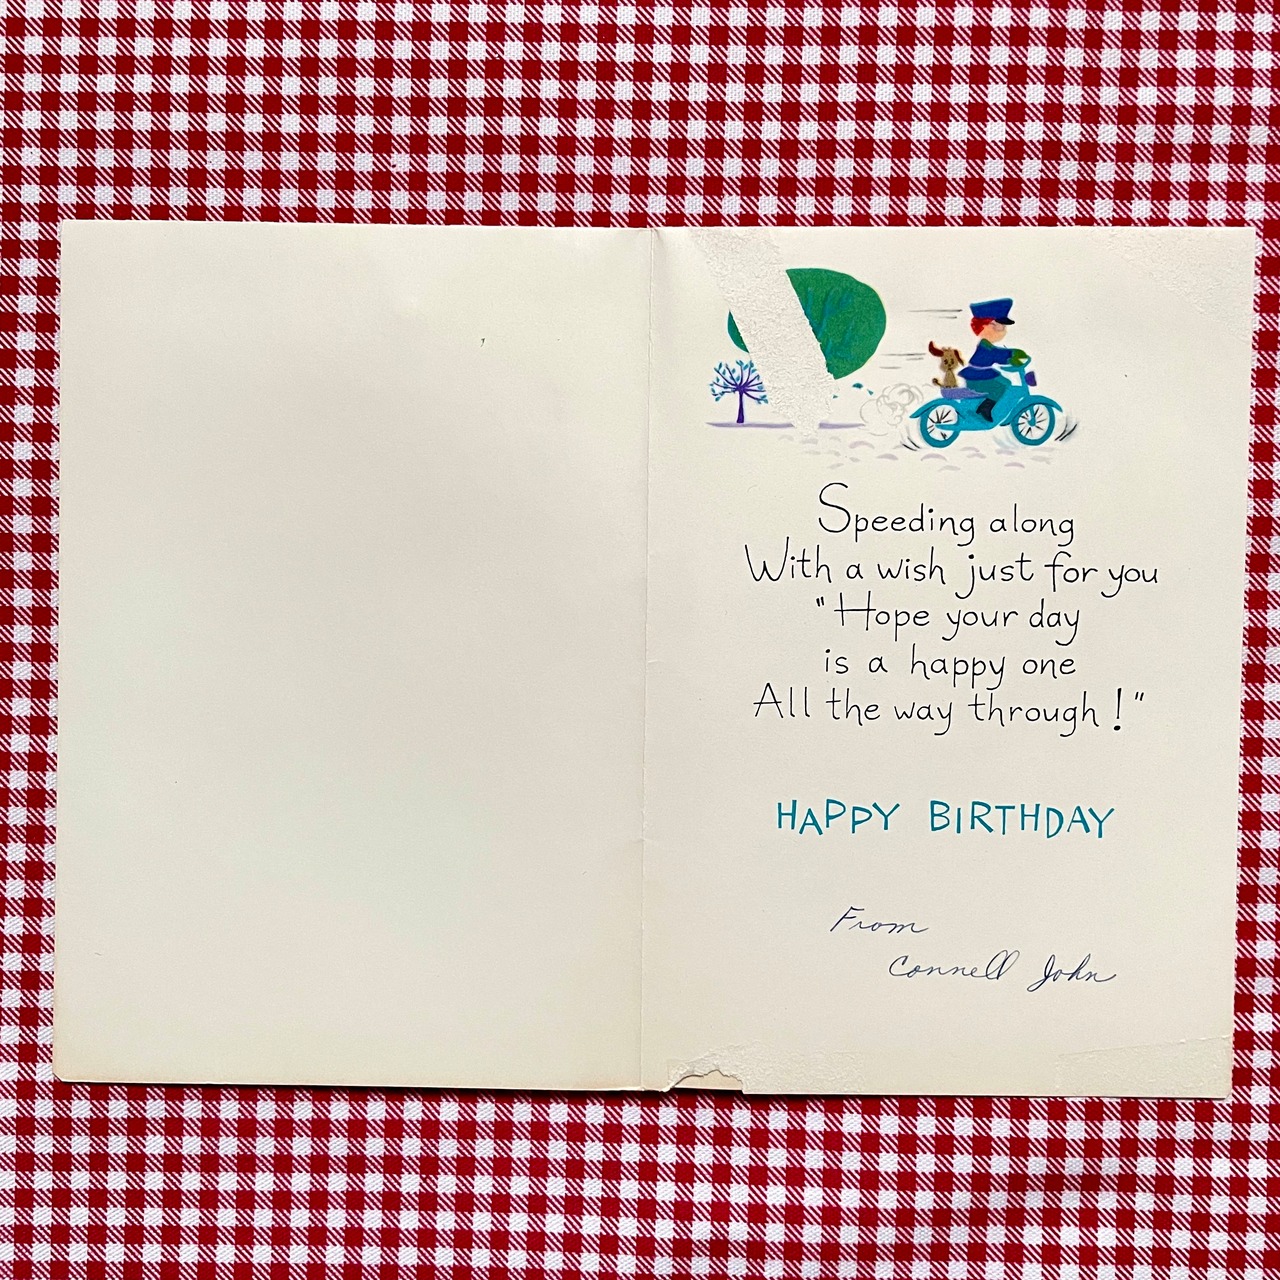 Speeding along
With a wish just for you
"Hope your day
is a happy one
All the way through!"
HAPPY BIRTHDAY
From
Connell John